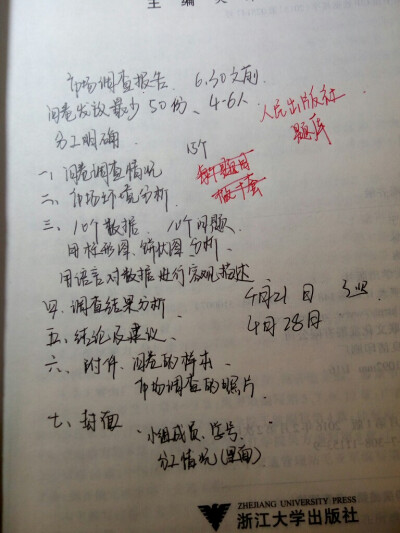 主编
市场调查报告 6.30之前
问卷发放最少50份、4-6人
人民出版社
题库
分工明确
15个
一、问卷调查情况
二、市场环境分析
三、10个数据、10个问题
用柱形图、饼状图分析、
用语言对数据进行客观描述
四、调查结果分析
4月21日
4月28日
五、结论及建议
六、附件、问卷的样本、
市场调查的照片
七、封面
小组成员、学号、
分工情况(里面)
ZHEJIANG UNIVERSITY PRESS
浙江大学出版社